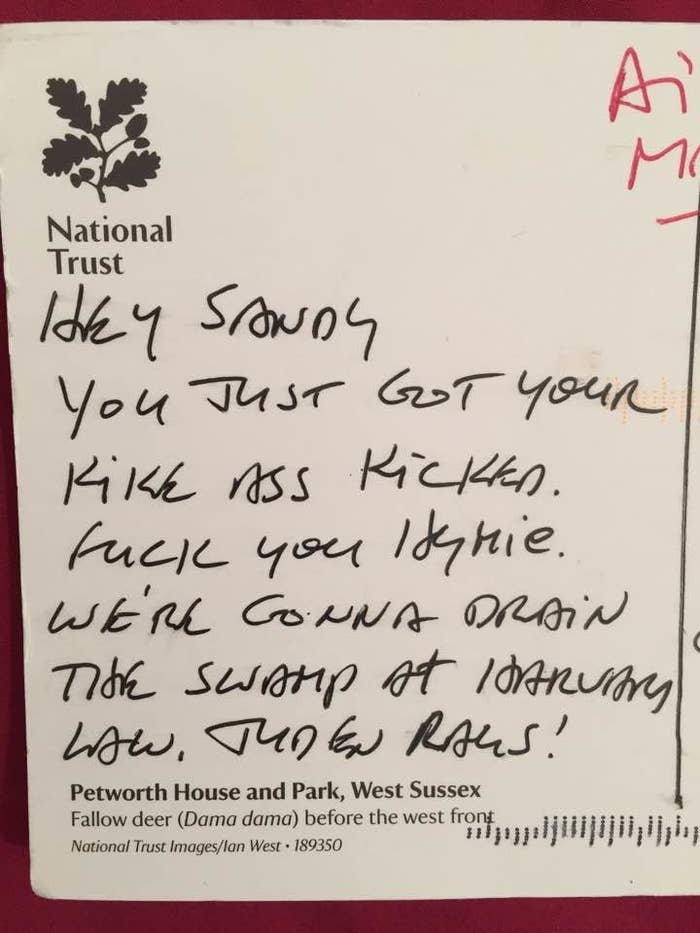 National
Trust
Ai
HEY SANDY
YOU JUST GOT YOUR
KIKE ASS KICKED.
FUCK YOU HYMIE.
WE'RE GONNA DRAIN
THE SWAMP AT HARVARD
LAW. JUDEN RAUS!
Petworth House and Park, West Sussex
Fallow deer (Dama dama) before the west front
National Trust Images/Ian West • 189350